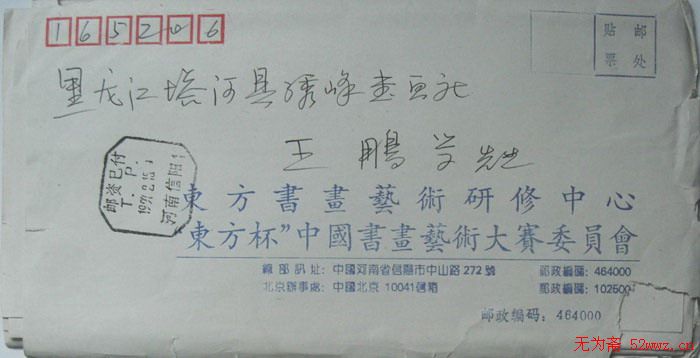 165206
贴 邮
票 处
黑龙江塔河县绣峰书画社
王鹏学先生
邮资已付
T. P.
河南信阳1
東方書畫藝術研修中心
“東方杯”中國書畫藝術大賽委員會
總部訊址: 中國河南省信陽市中山路272號 郵政編碼: 464000
北京辦事處: 中國北京10041信箱 郵政編碼: 102500
邮政编码: 464000
无为斋 52wwz.cn